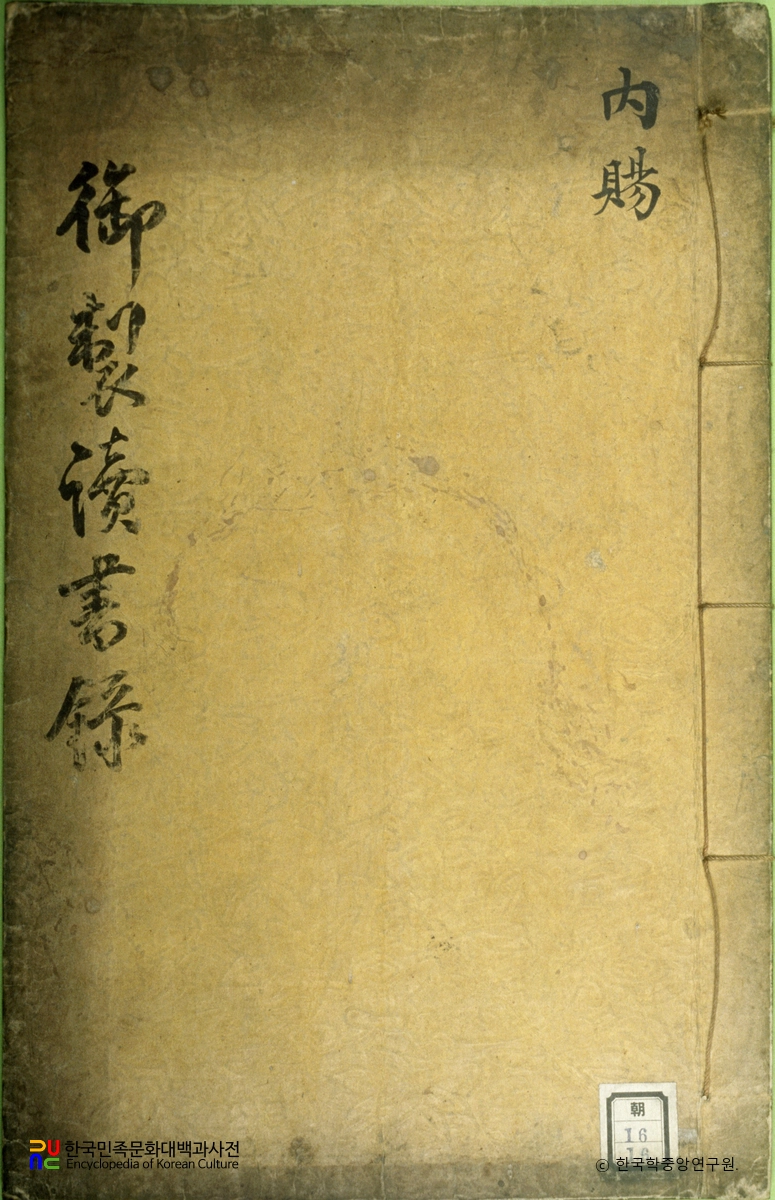 內賜
御製讀書錄
朝
16
한국민족문화대백과사전
Encyclopedia of Korean Culture
© 한국학중앙연구원.